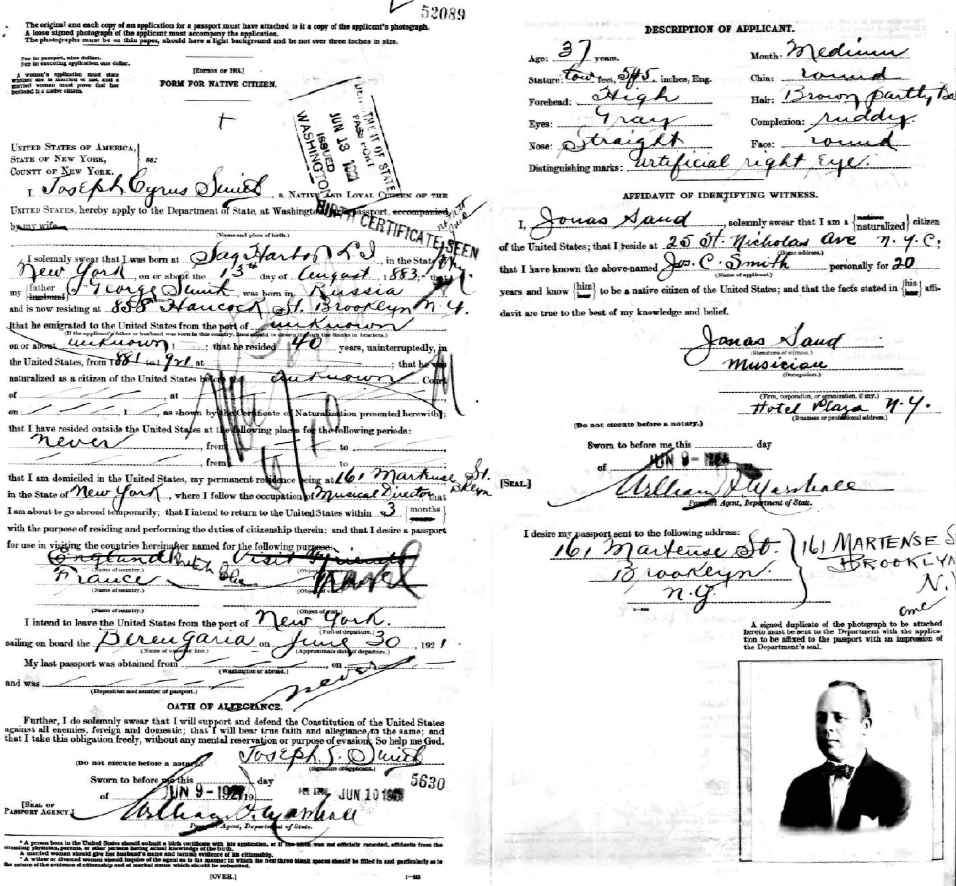 52089
The original and each copy of an application for a passport must have attached to it a copy of the applicant's photograph.
A loose signed photograph of the applicant must accompany the application.
The photographs must be on thin paper, should have a light background and be not over three inches in size.
Fee for passport, nine dollars.
Fee for executing application, one dollar.
A woman's application must state
whether she is married or not, and a
married woman must prove that her
husband is a native citizen.
FORM FOR NATIVE CITIZEN.
DEPARTMENT OF STATE
PASSPORT
JUN 13 1921
ISSUED
WASHINGTON
UNITED STATES OF AMERICA,
STATE OF NEW YORK,
COUNTY OF NEW YORK.
I, Joseph Cyrus Smith, a NATIVE AND LOYAL CITIZEN OF THE
UNITED STATES, hereby apply to the Department of State, at Washington, passport, accompanied
by my wife
BIRTH CERTIFICATE SEEN
(Name and place of birth.)
I solemnly swear that I was born at Sag Harbor L.I., in the State
New York, on or about the 13th day of August, 1883; that
my father George Smith, was born in Russia
(husband)
and is now residing at 858 Hancock St. Brooklyn N.Y.
that he emigrated to the United States from the port of unknown
on or about unknown; that he resided 40 years, uninterruptedly, in
the United States, from 1881 to 1921, at ; that he was
naturalized as a citizen of the United States before the unknown Court
of at
on , 1 , as shown by the Certificate of Naturalization presented herewith;
that I have resided outside the United States at the following places for the following periods:
never from to
from to
that I am domiciled in the United States, my permanent residence being at 161 Martense St. Bklyn
in the State of New York, where I follow the occupation of Musical Director; that
I am about to go abroad temporarily; that I intend to return to the United States within 3 months
with the purpose of residing and performing the duties of citizenship therein; and that I desire a passport
for use in visiting the countries hereinafter named for the following purpose:
England British Isles Visit friends
(Name of country.)
France Travel
(Name of country.)
(Name of country.) (Object of visit.)
I intend to leave the United States from the port of New York.
(Port of departure.)
sailing on board the Berengaria on June 30, 1921
(Name of vessel or line.) (Approximate date of departure.)
My last passport was obtained from on
(Washington or abroad.)
and was never
(Disposition and number of passport.)
OATH OF ALLEGIANCE.
Further, I do solemnly swear that I will support and defend the Constitution of the United States
against all enemies, foreign and domestic; that I will bear true faith and allegiance to the same; and
that I take this obligation freely, without any mental reservation or purpose of evasion: So help me God.
Joseph C. Smith
(Signature of applicant.)
(Do not execute before a notary.)
Sworn to before me this day 5630
of JUN 9 - 1921 JUN 10 1921
[SEAL OF
PASSPORT AGENCY.]
William A Marshall
Passport Agent, Department of State.
* A person born in the United States should submit a birth certificate with his application, or if the birth was not officially recorded, affidavits from the
attending physician, parents, or other persons having actual knowledge of the birth.
A married woman should give her husband's name and furnish evidence of his citizenship.
[OVER.]
DESCRIPTION OF APPLICANT.
Age: 37 years. Mouth: Medium
Stature: feet, inches, Eng. Chin: round
Forehead: High Hair: Brown partly
Eyes: Gray Complexion: ruddy
Nose: Straight Face: round
Distinguishing marks: artificial right Eye.
AFFIDAVIT OF IDENTIFYING WITNESS.
I, Jonas Saud solemnly swear that I am a {native naturalized} citizen
of the United States; that I reside at 25 St. Nicholas Ave N.Y.C.
(Home address.)
that I have known the above-named Jos. C. Smith personally for 20
(Name of applicant.)
years and know {him her} to be a native citizen of the United States; and that the facts stated in {his her} affi-
davit are true to the best of my knowledge and belief.
Jonas Saud
(Signature of witness.)
Musician
(Occupation.)
(Firm, corporation, or organization, if any.)
Hotel Plaza N.Y.
(Business or professional address.)
(Do not execute before a notary.)
Sworn to before me this day
of JUN 9 -
[SEAL.]
William A Marshall
Passport Agent, Department of State.
I desire my passport sent to the following address:
161 Martense St. 161 MARTENSE S
Brooklyn BROOKLYN
N.Y. N.Y
A signed duplicate of the photograph to be attached
hereto must be sent to the Department with the applica-
tion to be affixed to the passport with an impression of
the Department's seal.